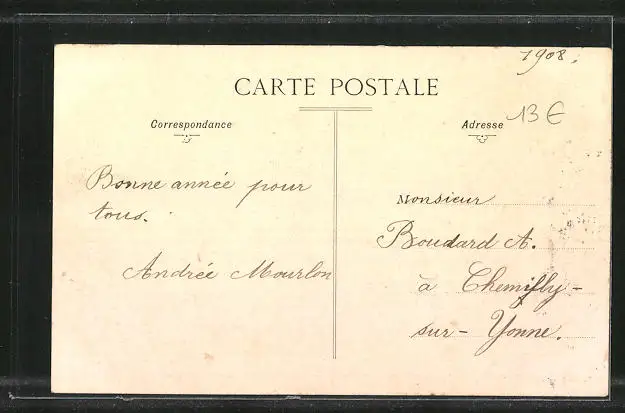 1908.
CARTE POSTALE
Correspondance
Adresse
13€
Bonne année pour
tous.
Andrée Mourlon
Monsieur
Boudard A.
à Chemilly-
sur-Yonne.